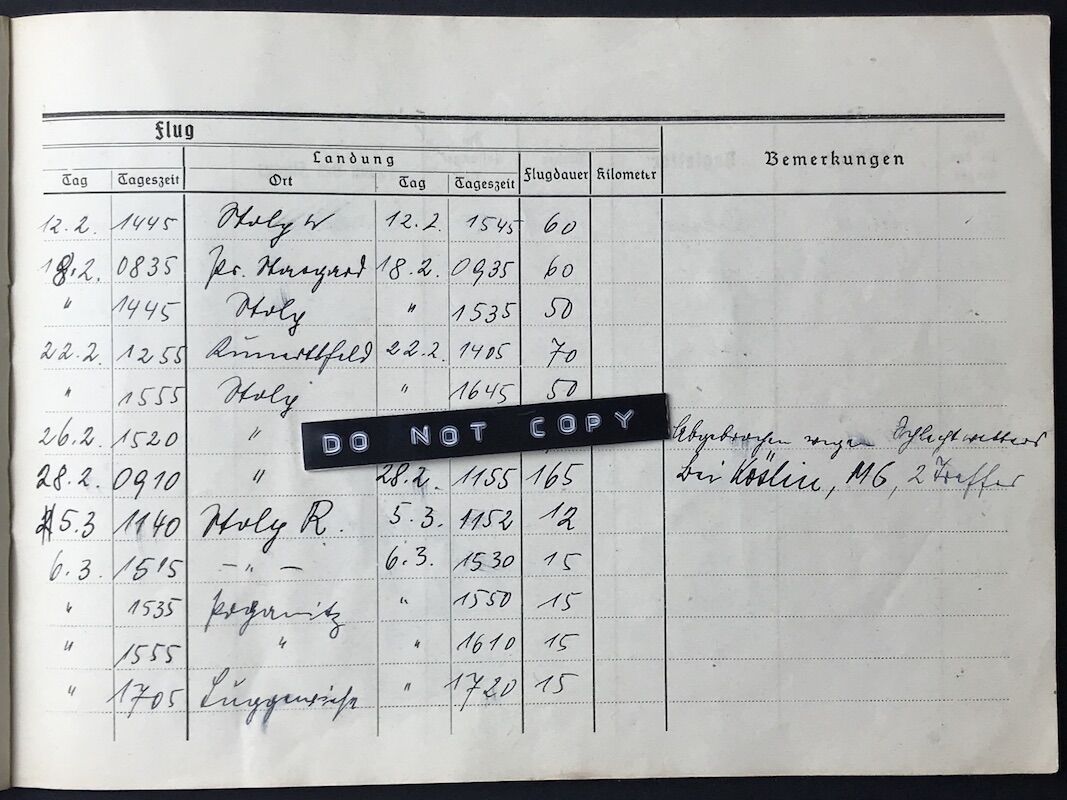 Flug
Landung
Bemerkungen
Tag Tageszeit Ort Tag Tageszeit Flugdauer Kilometer
12.2. 1445 Stolp W 12.2. 1545 60
18.2. 0835 Pr. Stargard 18.2. 0935 60
" 1445 Stolp " 1535 50
22.2. 1255 22.2. 1405 70
" 1555 Stolp " 1645 50
26.2. 1520 " Abgebrochen wegen Schlechtwetters
DO NOT COPY
28.2. 0910 " 28.2. 1155 165 bei Köslin, MG, 2 Treffer
5.3 1140 Stolp R. 5.3. 1152 12
6.3. 1515 – " – 6.3. 1530 15
" 1535 Poganitz " 1550 15
" 1555 " " 1610 15
" 1705 Luggewiese " 1720 15